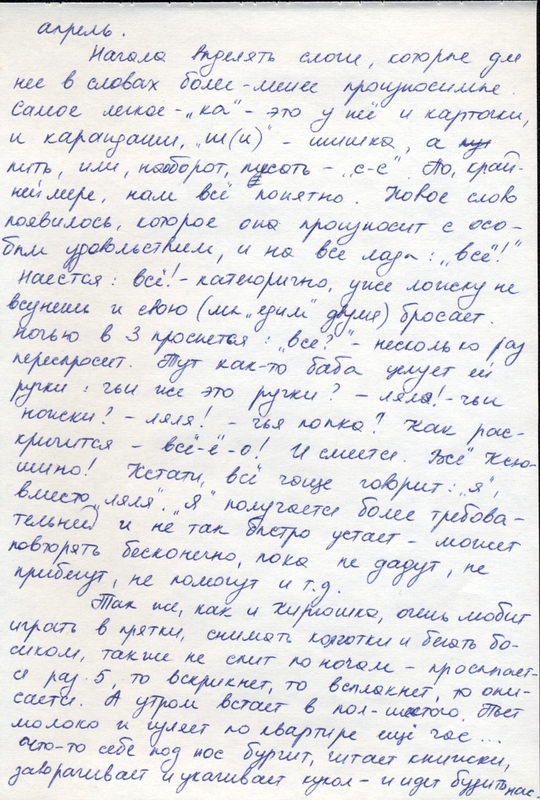 апрель.
Начала выделять слоги, которые для
нее в словах более-менее произносимые.
Самое легкое - „ка" - это у неё и карточки,
и карандаши, „ш(и)" - шишка, а
пить, или, наоборот, писать - „с-с". По, край-
ней мере, нам всё понятно. Новое слово
появилось, которое она произносит с осо-
бым удовольствием, и на все лады: „всё!"
Наестся: всё! - категорично, уже ложку не
всунешь и свою (мы „едим" двумя) бросает.
Ночью в 3 проснется: „все?" - несколько раз
переспросит. Тут как-то баба целует ей
ручки: чьи же это ручки? - ляля! - чьи
ножки? - ляля! - чья попка? Как рас-
кричится - всё-ё-о! И смеется. Всё Ксю-
шино! Кстати, всё чаще говорит: „я",
вместо „ляля". „Я" получается более требова-
тельней и не так быстро устает - может
повторять бесконечно, пока не дадут, не
прибегут, не помогут и т.д.
Так же, как и Кирюшка, очень любит
играть в прятки, снимать колготки и бегать бо-
сиком, также не спит по ночам - просыпает-
ся раз 5, то вскрикнет, то всплакнет, то опи-
сается. А утром встает в пол-шестого. Пьет
молоко и гуляет по квартире ещё час...
Что-то себе под нос бурчит, читает книжки,
заворачивает и укачивает кукол - и идет будить нас.